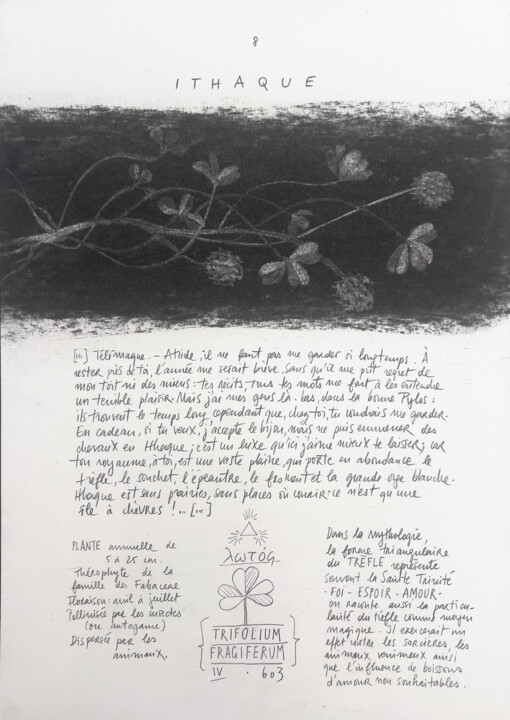 8
ITHAQUE
[...] Télémaque. - Atride, il ne faut pas me garder si longtemps. À
rester près de toi, l'année me serait brève, sans qu'il me prît regret de
mon toit ni des miens: tes récits, tous tes mots me font à les entendre
un terrible plaisir. Mais j'ai mes gens là-bas, dans la bonne Pylos:
ils trouvent le temps long, cependant que, chez toi, tu voudrais me garder.
En cadeau, si tu veux, j'accepte le bijou, mais ne puis emmener des
chevaux en Ithaque; c'est un luxe qu'ici j'aime mieux te laisser; car
ton royaume, à toi, est une vaste plaine, qui porte en abondance le
trèfle, le souchet, l'épeautre, le froment et la grande orge blanche.
Ithaque est sans prairies, sans places où courir - ce n'est qu'une
île à chèvres! ... [...]
PLANTE annuelle de
5 à 25 cm.
Thérophyte de la
famille des Fabaceae
Floraison: avril à juillet
Pollinisée par les insectes
(ou autogame)
Dispersée par les
animaux.
λωτός
TRIFOLIUM
FRAGIFERUM
IV · 603
Dans la mythologie,
la forme triangulaire
du TRÈFLE représente
souvent la Sainte Trinité
- FOI - ESPOIR - AMOUR -
on raconte aussi la particu-
larité du trèfle comme moyen
magique. Il exercerait un
effet contre les sorcières, les
animaux venimeux ainsi
que l'influence de boissons
d'amour non souhaitables.